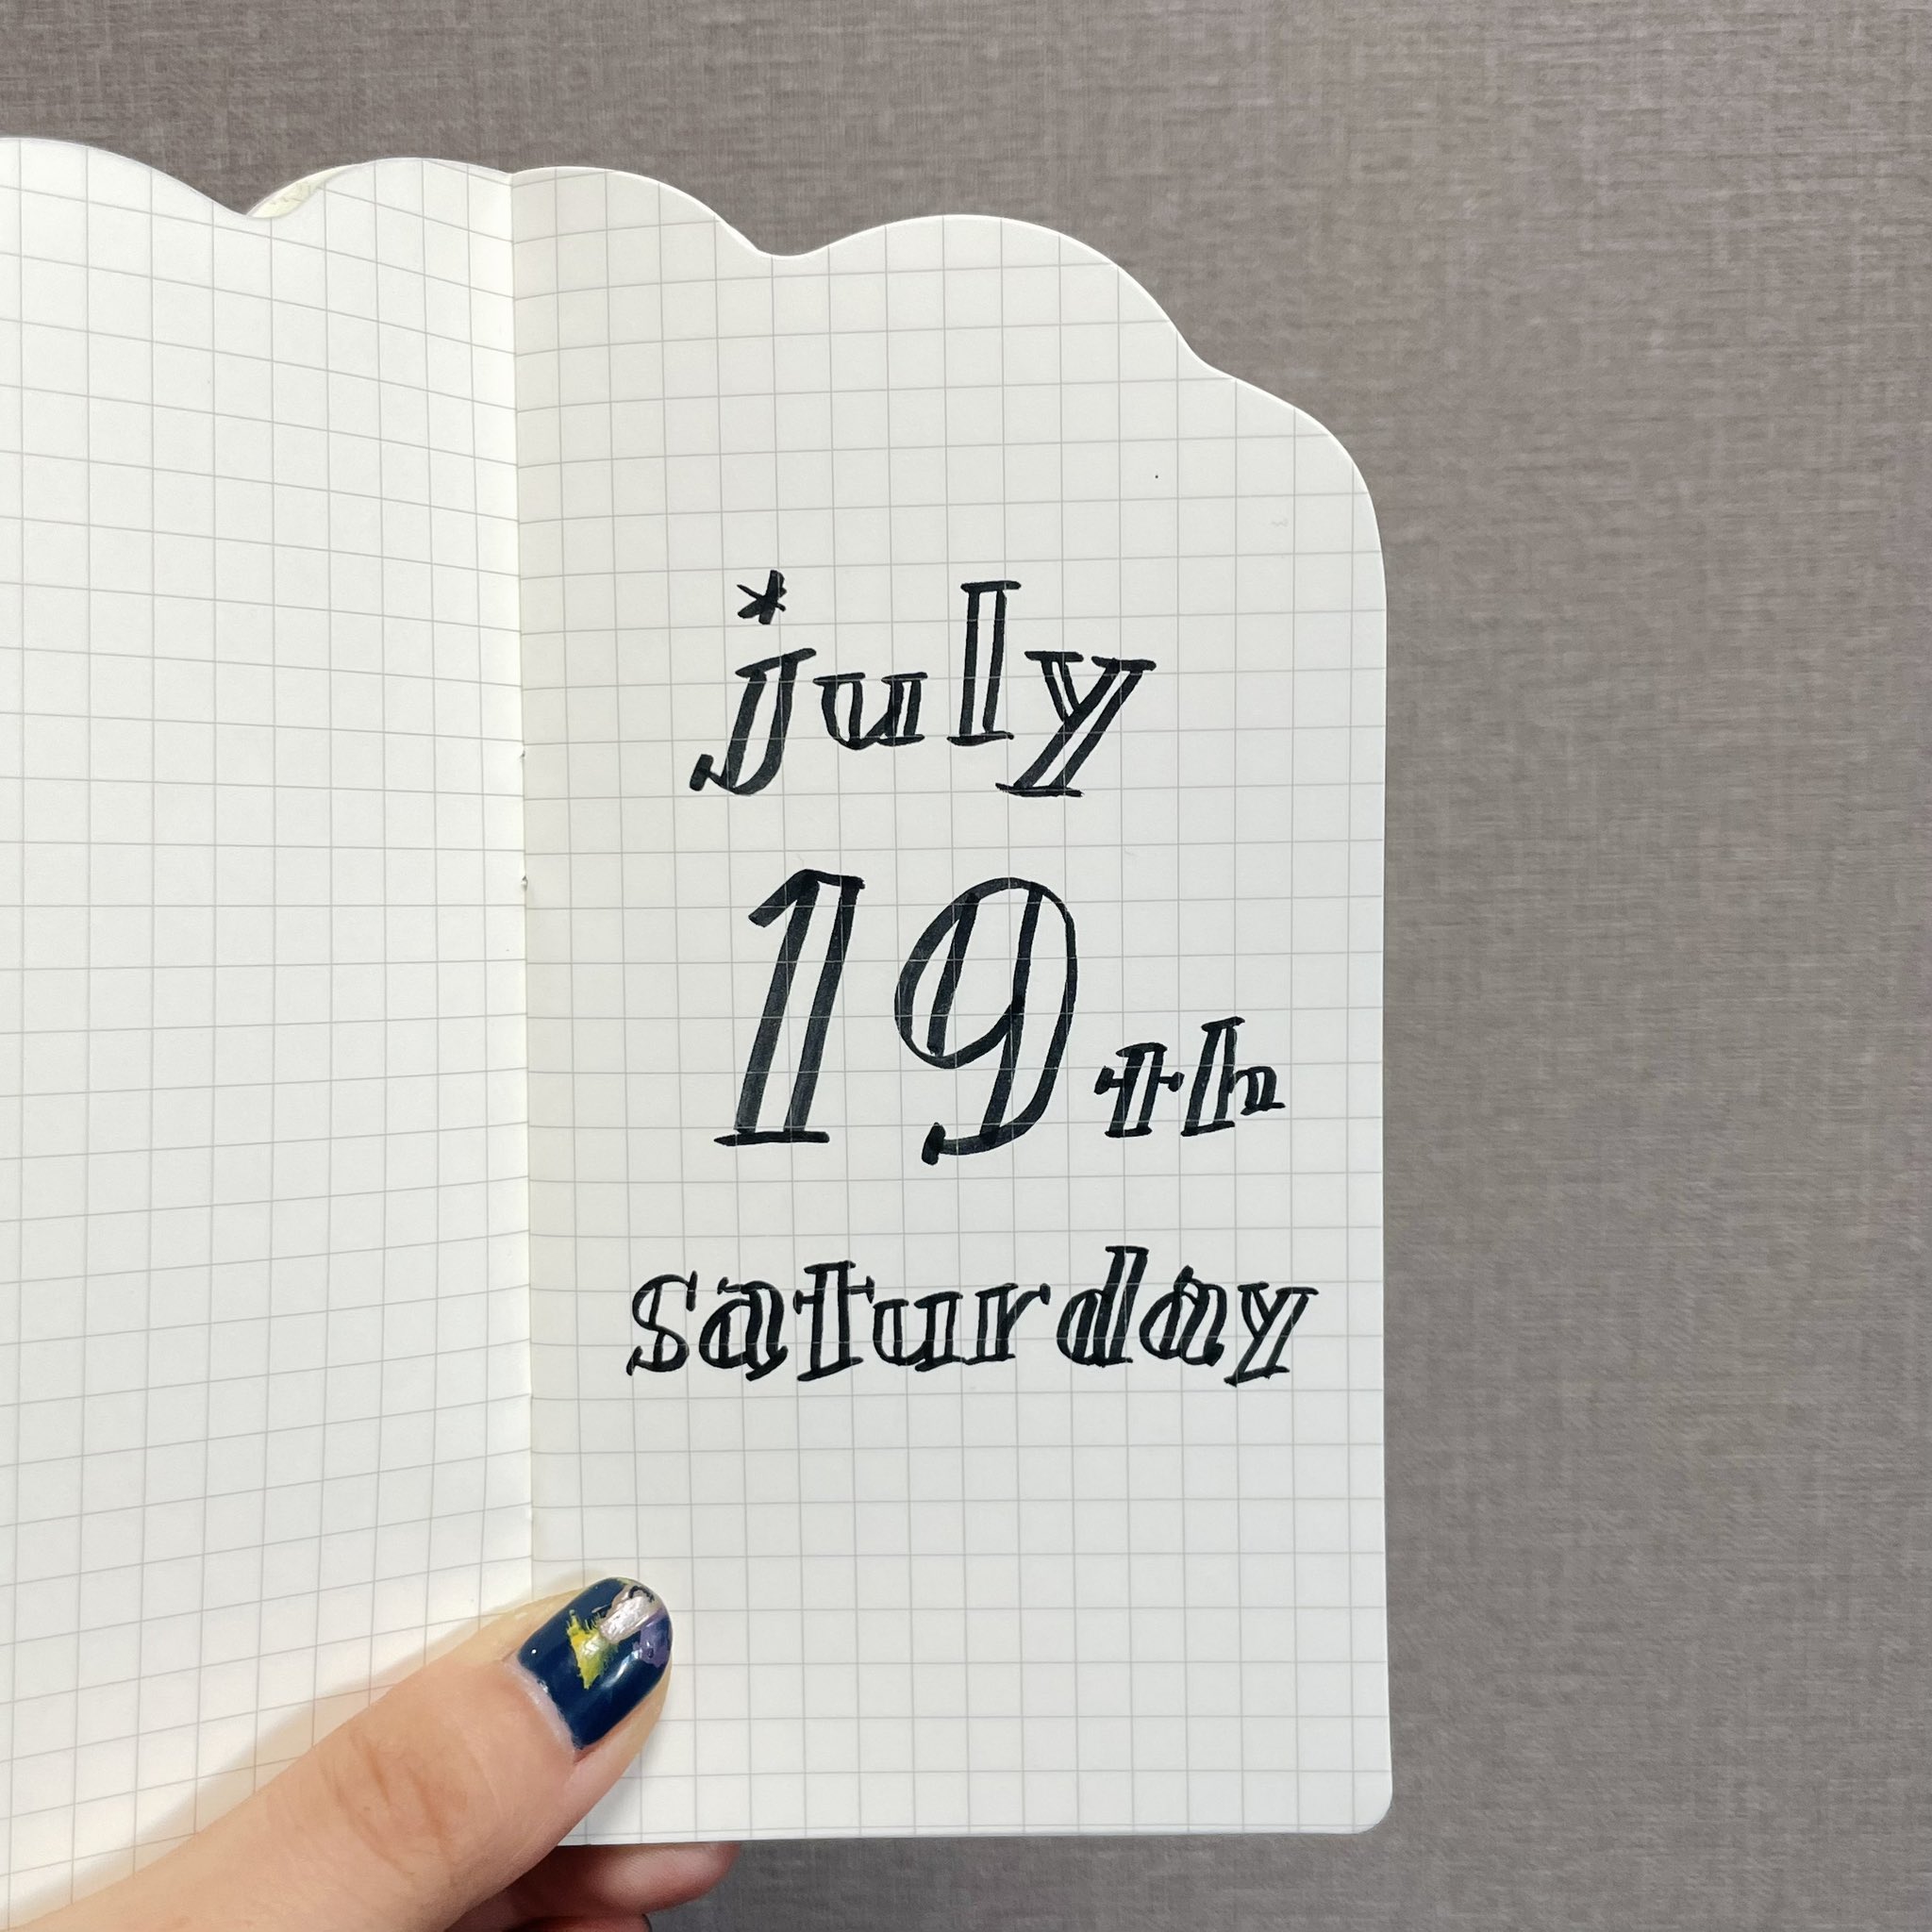 july
19th
saturday